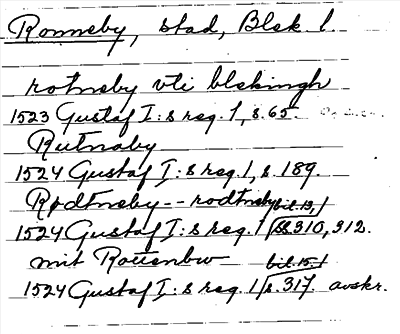 Ronneby, stad, Blek l.
rotneby vti blekingh
1523 Gustaf I:s reg. 1, s. 65.
Rutnaby
1524 Gustaf I:s reg. 1, s. 189.
Rodtneby -- rodtneby bil. 13, 1
1524 Gustaf I:s reg. 1 s. 310, 312.
mit Rottenbw bil. 15. 1
1524 Gustaf I:s reg. 1 s. 317. avskr.